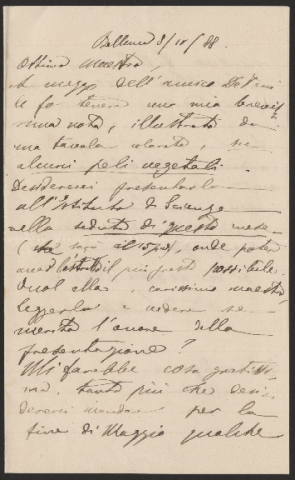 Belluno 8/10/88.
Ottimo Maestro,
A mezzo dell'amico De Toni
le fo tenere una mia brevis
sima nota, illustrata da
una tavola colorata, su
alcuni peli vegetali.
Desidererei presentarla
all'Istituto di Scienze
nella seduta di questo mese
( sarà il 15 ), onde poter
il più presto possibile.
Vuol ella, carissimo maestro
leggerla e vedere se
merita l'onore della
presentazione?
Mi farebbe cosa gratissi
ma, tanto più che desi
dererei mandare per la
fine di Maggio qualche